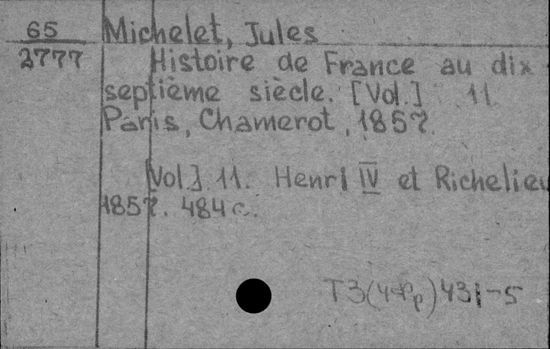 65 Michelet, Jules
2777 Histoire de France au dix
septième siècle. [Vol.] 11
Paris, Chamerot, 1857.
[Vol.] 11. Henri IV et Richelieu
1857. 484 c.
T3(4Фр)431-5